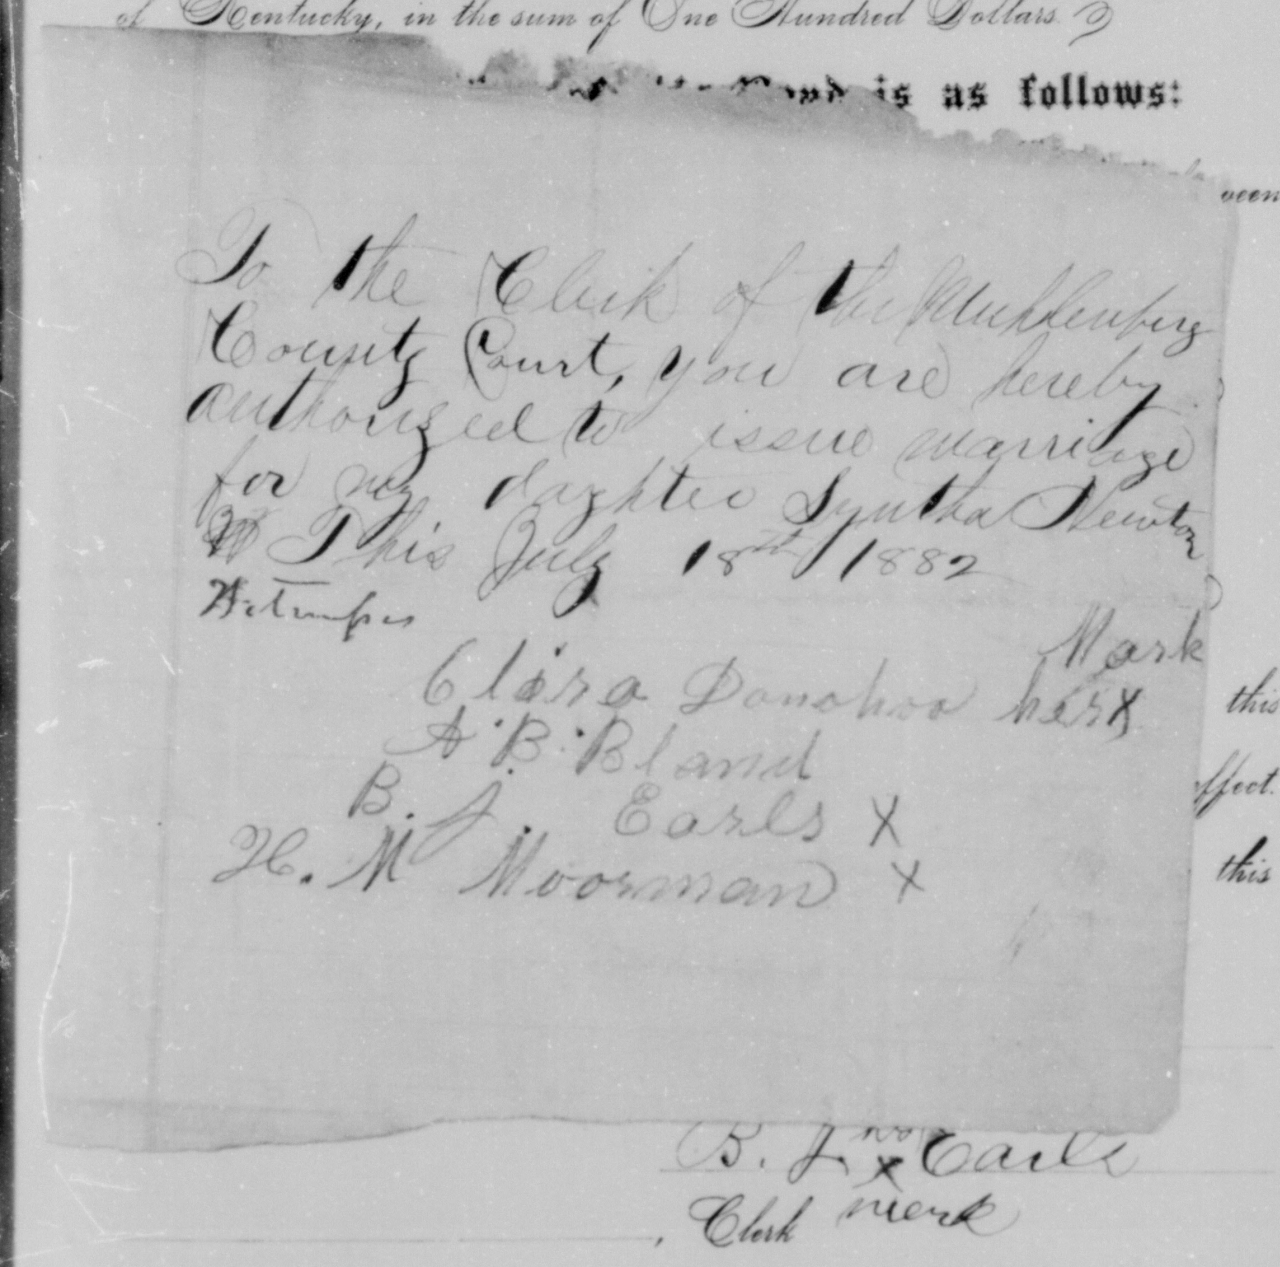 of Kentucky, in the sum of One Hundred Dollars.
Bond is as follows:
To the Clerk of the Muhlenberg
County Court, you are hereby
authorized to issue marriage
for my daghter Syntha Newton
This July 18st 1882
Witnesses
Mark
Clara Donohoo her X
A. B. Bland
B. J. Earls X
H. M Moorman X
this
effect.
this
B. J. X Earls
Clerk mark